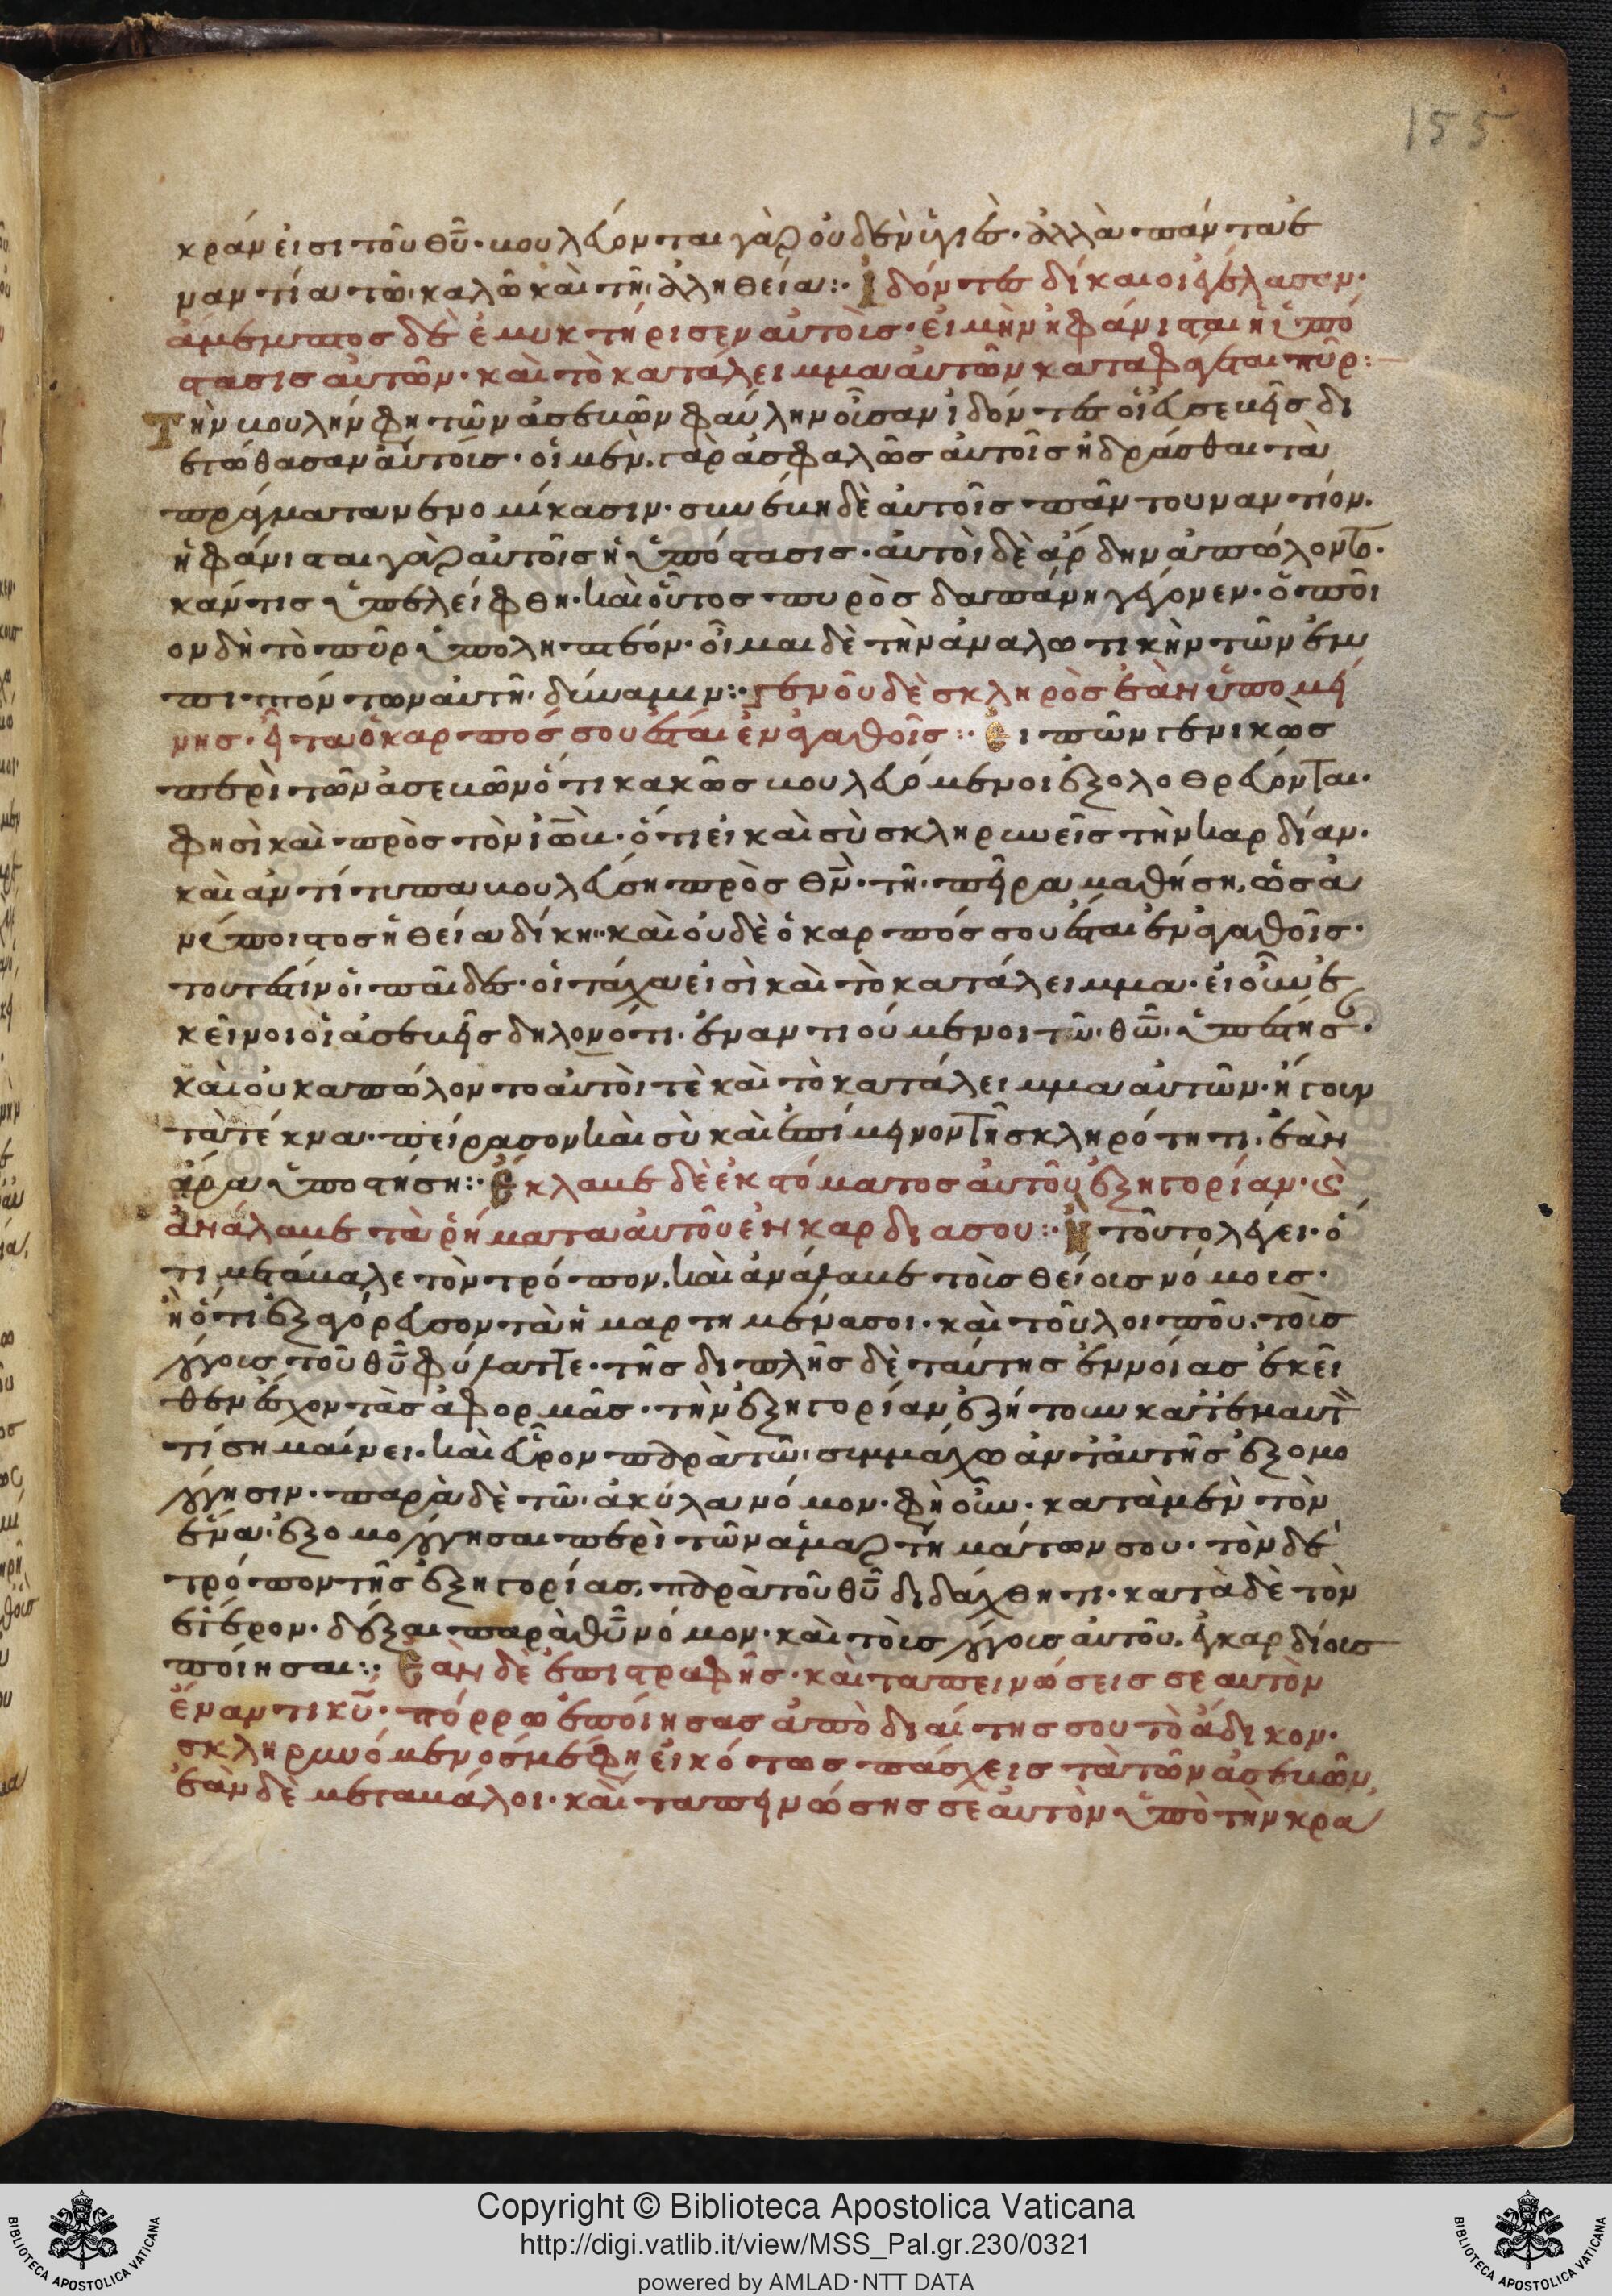 155
κράν εἰσι τοῦ θῦ· βουλεύονται γὰρ οὐδὲν ὑγιὲς· ἀλλὰ πάντα ἐ
ναντία τῶ καλῶ καὶ τῆ ἀληθεία:· Ἰδόντες δίκαιοι ἐγέλασαν·
ἄμεμπτος δὲ ἐμυκτήρισεν αὐτοὺς· εἰ μὴν ἠφάνισται ἡ ὑπό
στασις αὐτῶν· καὶ τὸ κατάλειμμα αὐτῶν καταφάγεται πῦρ:
Τὴν βουλήν φη τῶν ἀσεβῶν φαύλην οὖσαν ἰδόντες οἱ εὐσεβεῖς δι
ετώθασαν αὐτούς· οἱ μὲν γὰρ ἀσφαλῶς αὐτοῖς ἡδράσθαι τὰ
πράγματα νενομίκασιν· συνέβη δὲ αὐτοῖς πᾶν τουναντίον·
ἠφάνισται γὰρ αὐτοῖς ἡ ὑπόστασις· αὐτοὶ δὲ ἄρδην ἀπώλοντο·
κάν τις ὑπελείφθη· καὶ οὗτος πυρὸς δαπάνη γέγονεν· ὁποῖ
ον δὴ τὸ πῦρ ὑποληπτεόν· οἶμαι δὲ τὴν ἀναλωτικὴν τῶν ἐμ
πιπτόντων αὐτῆ δύναμιν:· γενοῦ δὲ σκληρὸς ἐὰν ὑπομεί
νης· εἶτα ὁ καρπός σου ἔσται ἐν ἀγαθοῖς:· Εἰπὼν γενικῶς
περὶ τῶν ἀσεβῶν ὅτι κακῶς βουλευόμενοι ἐξολοθρεύονται·
φησὶ καὶ πρὸς τὸν ἰὼβ· ὅτι εἰ καὶ σὺ σκληρυνεῖς τὴν καρδίαν·
καὶ ἀντίτυπα βουλεύση πρὸς θν· τῆ πείρα μαθήση, ὡς ἀ
νύποιστος ἡ θεία δίκη· καὶ οὐδὲ ὁ καρπός σου ἔσται ἐν ἀγαθοῖς·
τουτέστιν οἱ παῖδες· οἱ τάχα εἰσὶ καὶ τὸ κατάλειμμα· εἰ οὖν ἐ
κεῖνοι οἱ ἀσεβεῖς δηλονότι· ἐναντιούμενοι τῶ θω· ὑπέστησ
καὶ οὐκ ἀπώλοντο αὐτοὶ τὲ καὶ τὸ κατάλειμμα αὐτῶν· ἤγουν
τὰ τέκνα· πείρασον καὶ σὺ καὶ ἐπίμεινον τῆ σκληρότητι· ἐὰν
ἄρα ὑποστήση:· Ἔκλαβε δὲ ἐκ στόματος αὐτοῦ ἐξηγορίαν· ϗ
ἀνάλαβε τὰ ῥήματα αὐτοῦ ἐν καρδία σου:· Ἢ τοῦτο λέγει· ὅ
τι μετάβαλε τὸν τρόπον, καὶ ἀνάλαβε τοὺς θείους νόμους·
ἢ ὅτι ἐξαγόρευσον τὰ ἡμαρτημένα σοι· καὶ τοῦ λοιποῦ, τοὺς
λόγους τοῦ θῦ φύλαττε· τῆς διπλῆς δὲ ταύτης ἐννοίας ἐκεῖ
θεν ἔσχον τὰς ἀφορμὰς· τὴν ἐξηγορίαν ἐζήτουν κατ' ἐμαυτ
τί σημαίνει· καὶ εὗρον παρὰ τῶ συμμάχω ἀντ' αὐτῆς ἐξομο
λόγησιν· παρὰ δὲ τῶ ἀκύλα νόμον· φὴ οὖν· κατὰ μὲν τὸν
ἕνα· ἐξομολόγησαι περὶ τῶν ἁμαρτημάτων σου· τὸν δὲ
τρόπον τῆς ἐξηγορίας, παρὰ τοῦ θῦ διδάχθητι· κατὰ δὲ τὸν
ἕτερον· δέξαι παρὰ θῦ νόμον· καὶ τοὺς λόγους αὐτοῦ, ἐγκαρδίους
ποίησαι:· Ἐὰν δὲ ἐπιστραφῆς· καὶ ταπεινώσεις σεαυτὸν
ἔναντι κῦ· πόρρω ἐποίησας ἀπὸ διαίτης σου τὸ ἄδικον·
σκληρυνόμενος μέν φη εἰκότως πάσχεις τὰ τῶν ἀσεβῶν,
ἐὰν δὲ μεταβάλοι· καὶ ταπεινώσης σεαυτὸν ὑπὸ τὴν κρα
Copyright © Biblioteca Apostolica Vaticana
http://digi.vatlib.it/view/MSS_Pal.gr.230/0321
powered by AMLAD·NTT DATA
BIBLIOTECA APOSTOLICA VATICANA
BIBLIOTECA APOSTOLICA VATICANA